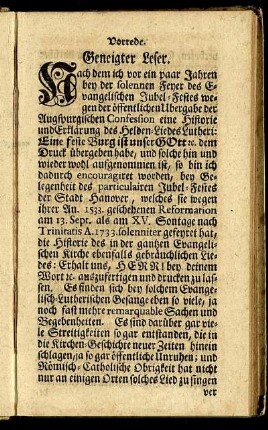 Vorrede.
Geneigter Leser.
Nach dem ich vor ein paar Jahren
bey der solennen Feyer des E-
vangelischen Jubel-Festes we-
gen der öffentlichen Ubergabe der
Augspurgischen Confession eine Historie
und Erklärung des Helden-Liedes Lutheri:
Eine feste Burg ist unser GOtt ꝛc. dem
Druck übergeben habe, und solche hin und
wieder wohl aufgenommen ist, so bin ich
dadurch encouragiret worden, bey Ge-
legenheit des particulairen Jubel-Festes
der Stadt Hanover, welches sie wegen
ihrer An. 1533. geschehenen Reformation
am 13. Sept. als am XV. Sontage nach
Trinitatis A. 1733. solenniter gefeyret hat,
die Historie des in der gantzen Evangeli-
schen Kirche ebenfalls gebräuchlichen Lie-
des: Erhalt uns, HERR! bey deinem
Wort ꝛc. auszufertigen und drucken zu las-
sen. Es finden sich bey solchem Evange-
lisch-Lutherischen Gesange eben so viele, ja
noch fast mehre remarquable Sachen und
Begebenheiten. Es sind darüber gar vie-
le Streitigkeiten so gar entstanden, die in
die Kirchen-Geschichte neuer Zeiten hinein
schlagen, ja so gar öffentliche Unruhen; und
Römisch-Catholische Obrigkeit hat nicht
nur an einigen Orten solches Lied zu singen
ver